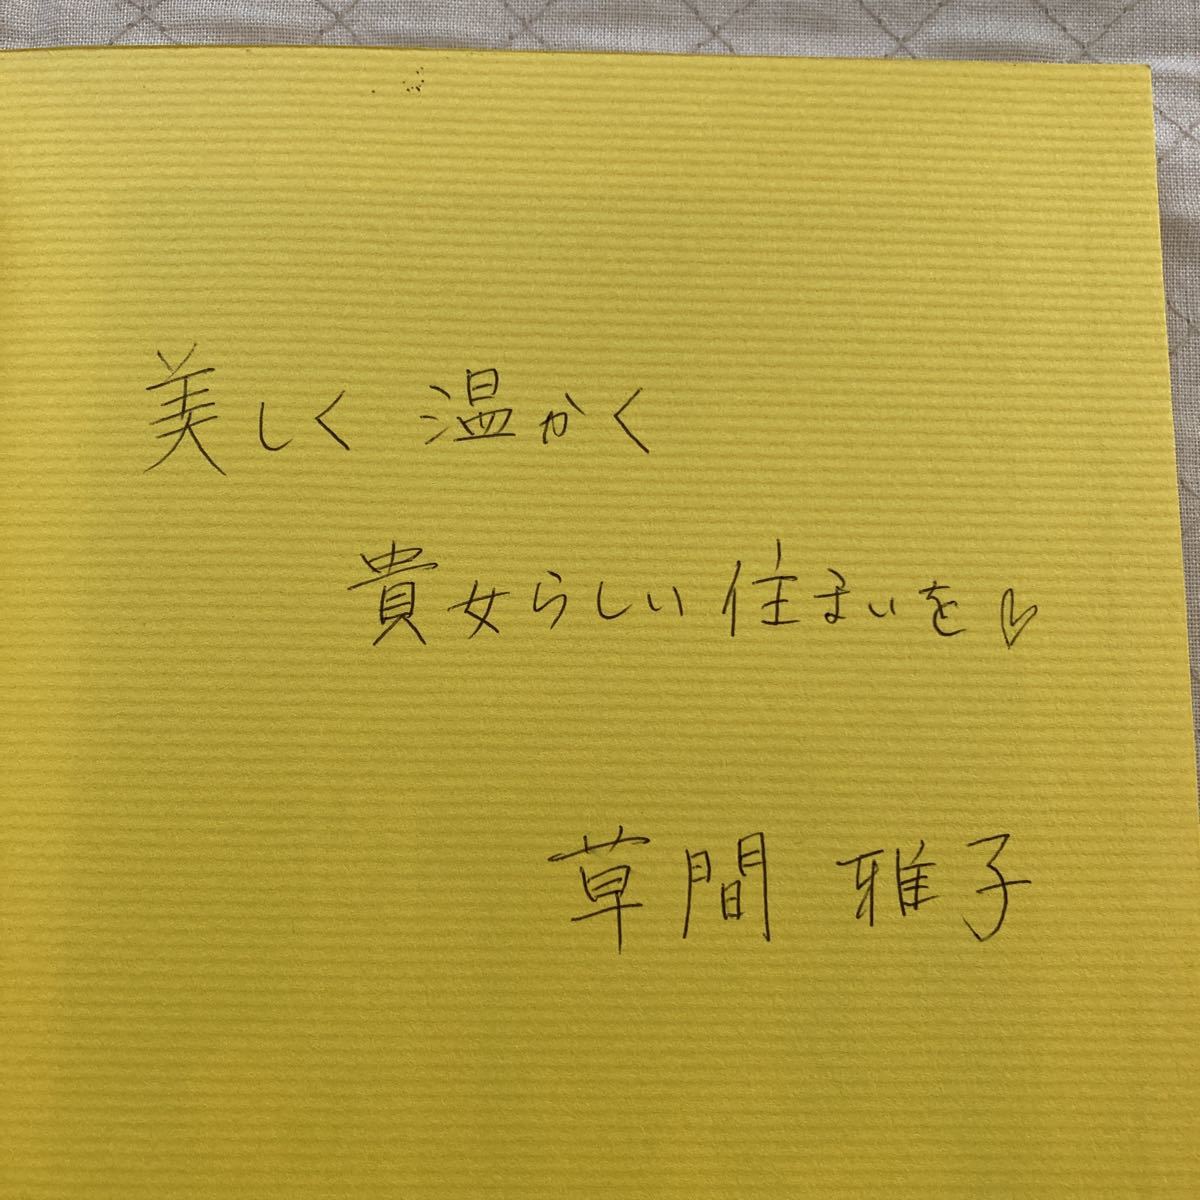 美しく 温かく
貴女らしい 住まいを♡
草間 雅子